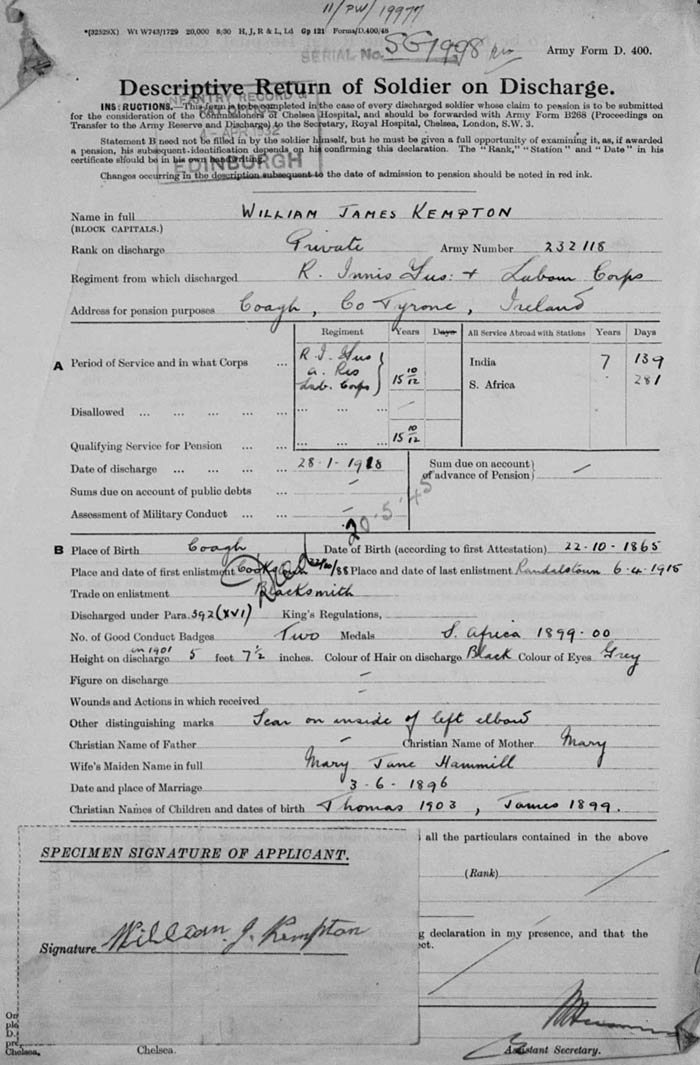 11/PW/19977
*(32529X) Wt W743/1729 20,000 8/30 H, J, R & L, Ld Gp 121 Forms/D.400/48
SERIAL No. SG 1998 Army Form D. 400.
Descriptive Return of Soldier on Discharge.
INSTRUCTIONS.—This form is to be completed in the case of every discharged soldier whose claim to pension is to be submitted
for the consideration of the Commissioners of Chelsea Hospital, and should be forwarded with Army Form B268 (Proceedings on
Transfer to the Army Reserve and Discharge) to the Secretary, Royal Hospital, Chelsea, London, S.W. 3.
INFANTRY RECORD
APR 1932
EDINBURGH
Statement B need not be filled in by the soldier himself, but he must be given a full opportunity of examining it, as, if awarded
a pension, his subsequent identification depends on his confirming this declaration. The "Rank," "Station" and "Date" in his
certificate should be in his own handwriting.
Changes occurring in the description subsequent to the date of admission to pension should be noted in red ink.
Name in full WILLIAM JAMES KEMPTON
(BLOCK CAPITALS.)
Rank on discharge Private Army Number 232118
Regiment from which discharged R. Innis Fus: + Labour Corps
Address for pension purposes Coagh, Co Tyrone, Ireland
Regiment Years Days All Service Abroad with Stations Years Days
A Period of Service and in what Corps ... R. I. Fus 15 10/12 India 7 139
A. Res S. Africa 281
Lab. Corps
Disallowed ... ... ... ... ... ... ... —
Qualifying Service for Pension ... ... ... ... ... 15 10/12
Date of discharge ... ... ... ... 28-1-1918 Sum due on account of advance of Pension —
Sums due on account of public debts ... —
Assessment of Military Conduct ... ... —
20.5.45
B Place of Birth Coagh Date of Birth (according to first Attestation) 22-10-1865
Place and date of first enlistment /88 Place and date of last enlistment Randalstown 6.4.1915
Trade on enlistment Blacksmith
Discharged under Para. 392 (XVI) King's Regulations,
No. of Good Conduct Badges Two Medals S. Africa 1899-00
in 1901
Height on discharge 5 feet 7½ inches. Colour of Hair on discharge Black Colour of Eyes Grey
Figure on discharge —
Wounds and Actions in which received —
Other distinguishing marks Scar on inside of left elbow
Christian Name of Father — Christian Name of Mother Mary
Wife's Maiden Name in full Mary Jane Hammill
Date and place of Marriage 3-6-1896
Christian Names of Children and dates of birth Thomas 1903, James 1899.
all the particulars contained in the above
SPECIMEN SIGNATURE OF APPLICANT.
(Rank)
Signature William J. Kempton
declaration in my presence, and that the
Assistant Secretary.
Chelsea. Chelsea.